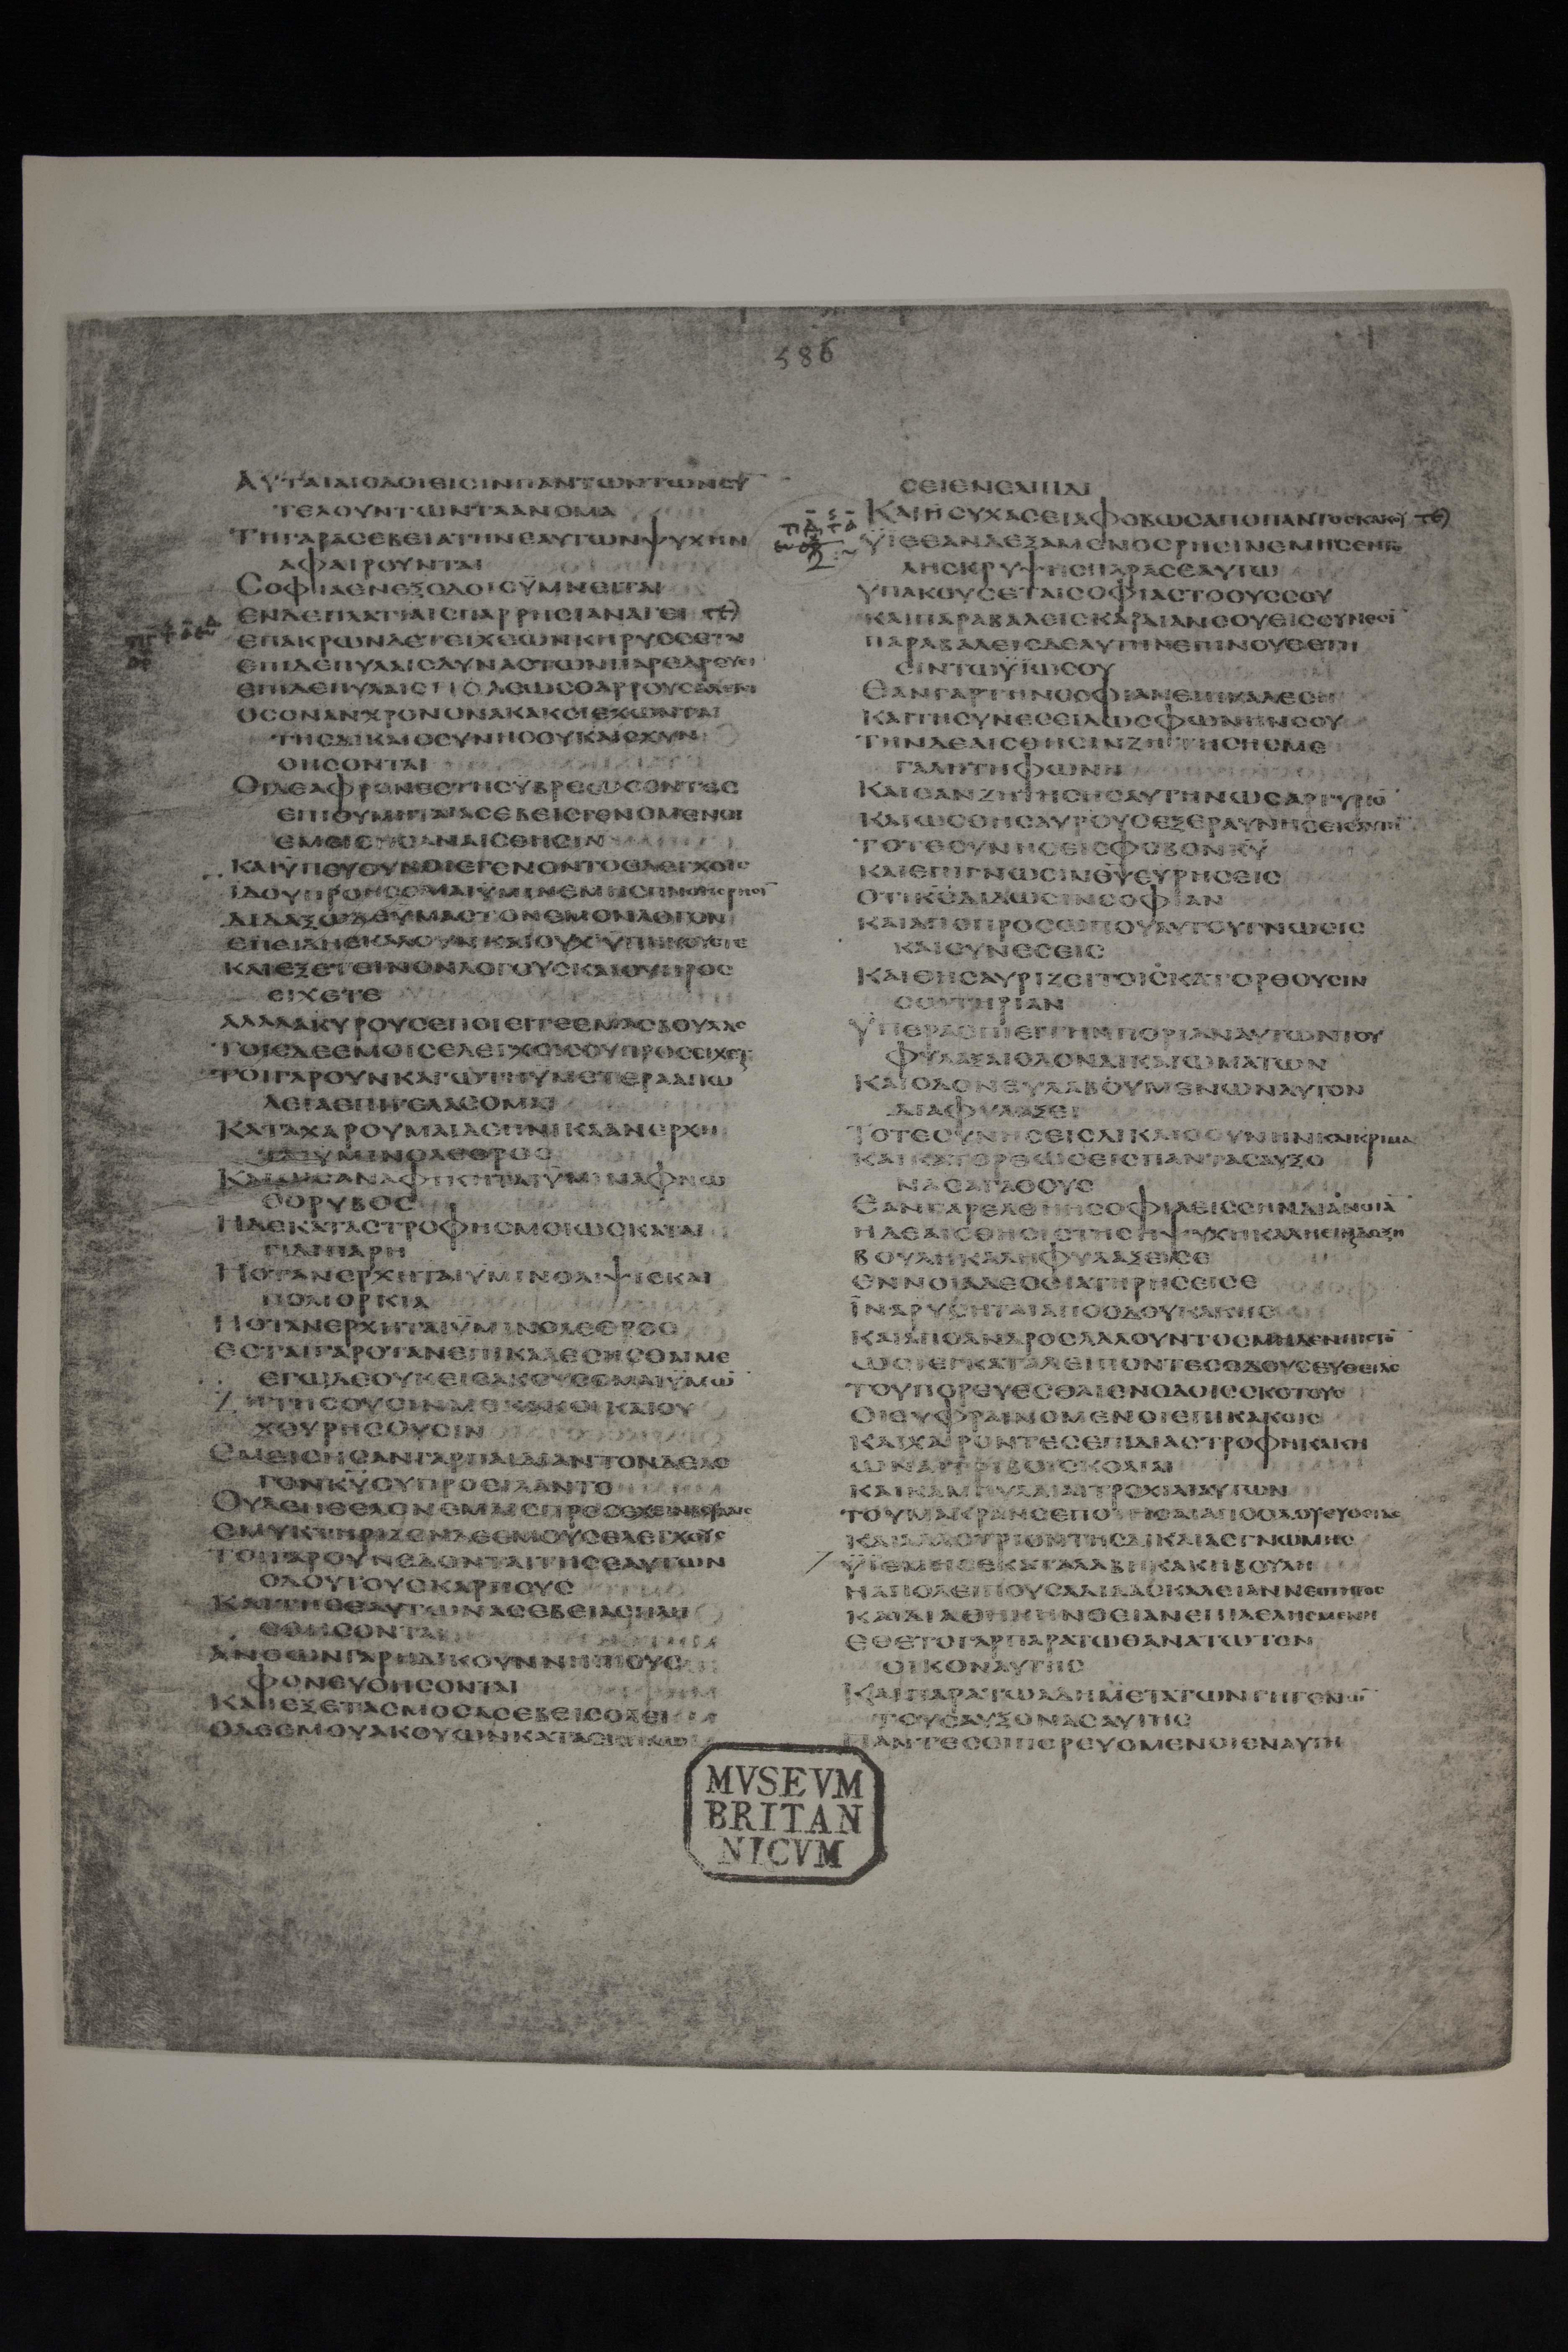 586
ΑΥΤΑΙΑΙΟΔΟΙΕΙCΙΝΠΑΝΤΩΝΤΩΝCΥ̅
ΤΕΛΟΥΝΤΩΝΤΑΑΝΟΜΑ
ΤΗΓΑΡΑCΕΒΕΙΑΤΗΝΕΑΥΤΩΝΨΥΧΗΝ
ΑΦΑΙΡΟΥΝΤΑΙ
CΟΦΙΑΕΝΕΞΟΔΟΙCΫΜΝΕΙΤΑΙ
ΕΝΔΕΠΛΑΤΙΑΙCΠΑΡΡΗCΙΑΝΑΓΕΙ
ΕΠΑΚΡΩΝΔΕΤΕΙΧΕΩΝΚΗΡΥCCΕΤΑΙ
ΕΠΙΔΕΠΥΛΑΙCΔΥΝΑCΤΩΝΠΑΡΕΔΡΕΥΕΙ
ΕΠΙΔΕΠΥΛΑΙCΠΟΛΕΩCΘΑΡΡΟΥCΑΛΕΓΕΙ
ΟCΟΝΑΝΧΡΟΝΟΝΑΚΑΚΟΙΕΧΩΝΤΑΙ
ΤΗCΔΙΚΑΙΟCΥΝΗCΟΥΚΑΙCΧΥΝ
ΘΗCΟΝΤΑΙ
ΟΙΔΕΑΦΡΟΝΕCΤΗCΫΒΡΕΩCΟΝΤΕC
ΕΠΙΘΥΜΗΤΑΙΑCΕΒΕΙCΓΕΝΟΜΕΝΟΙ
ΕΜΕΙCΗCΑΝΑΙCΘΗCΙΝ
ΚΑΙΫΠΕΥΘΥΝΟΙΕΓΕΝΟΝΤΟΕΛΕΓΧΟΙC
ΪΔΟΥΠΡΟΗCΟΜΑΙΫΜΙΝΕΜΗCΠΝΟΗCΡΗCΙ̅
ΔΙΔΑΞΩΔΕΫΜΑCΤΟΝΕΜΟΝΛΟΓΟΝ
ΕΠΕΙΔΗΕΚΑΛΟΥΝΚΑΙΟΥΧΫΠΗΚΟΥCΑΤΕ
ΚΑΙΕΞΕΤΕΙΝΟΝΛΟΓΟΥCΚΑΙΟΥΠΡΟC
ΕΙΧΕΤΕ
ΑΛΛΑΑΚΥΡΟΥCΕΠΟΙΕΙΤΕΕΜΑCΒΟΥΛΑC
ΤΟΙCΔΕΕΜΟΙCΕΛΕΓΧΟΙCΟΥΠΡΟCΕΙΧΕΤΕ
ΤΟΙΓΑΡΟΥΝΚΑΓΩΤΗΫΜΕΤΕΡΑΑΠΩ
ΛΕΙΑΕΠΙΓΕΛΑCΟΜΑΙ
ΚΑΤΑΧΑΡΟΥΜΑΙΔΕΗΝΙΚΑΑΝΕΡΧΗ
ΤΑΙΫΜΙΝΟΛΕΘΡΟC
ΚΑΙΩCΑΝΑΦΙΚΗΤΑΙΫΜΙΝΑΦΝΩ
ΘΟΡΥΒΟC
ΗΔΕΚΑΤΑCΤΡΟΦΗCΜΟΙΩCΚΑΤΑΙ
ΓΙΔΙΠΑΡΗ
ΗΟΤΑΝΕΡΧΗΤΑΙΫΜΙΝΘΛΙΨΙCΚΑΙ
ΠΟΛΙΟΡΚΙΑ
ΗΟΤΑΝΕΡΧΗΤΑΙΫΜΙΝΟΛΕΘΡΟC
ΕCΤΑΙΓΑΡΟΤΑΝΕΠΙΚΑΛΕCΗCΘΑΙΜΕ
ΕΓΩΔΕΟΥΚΕΙCΑΚΟΥCΟΜΑΙΫΜΩ̅
ΖΗΤΗCΟΥCΙΝΜΕΚΑΚΟΙΚΑΙΟΥ
ΧΕΥΡΗCΟΥCΙΝ
ΕΜΕΙCΗCΑΝΓΑΡΠΑΙΔΙΑΝΤΟΝΔΕΛΟ
ΓΟΝΚΥ̅ΟΥΠΡΟΕΙΛΑΝΤΟ
ΟΥΔΕΗΘΕΛΟΝΕΜΑΙCΠΡΟCΕΧΕΙΝΒΟΥΛΑΙC
ΕΜΥΚΤΗΡΙΖΟΝΔΕΕΜΟΥCΕΛΕΓΧΟΥC
ΤΟΙΓΑΡΟΥΝΕΔΟΝΤΑΙΤΗCΕΑΥΤΩΝ
ΟΔΟΥΤΟΥCΚΑΡΠΟΥC
ΚΑΙΤΗCΕΑΥΤΩΝΑCΕΒΕΙΑCΠΛΗ
CΘΗCΟΝΤΑΙ
ΑΝΘΩΝΓΑΡΗΔΙΚΟΥΝΝΗΠΙΟΥC
ΦΟΝΕΥΘΗCΟΝΤΑΙ
ΚΑΙΕΞΕΤΑCΜΟCΑCΕΒΕΙCΟΛΕΙ
ΟΔΕΕΜΟΥΑΚΟΥΩΝΚΑΤΑCΚΗΝΩ
CΕΙΕΝΕΛΠΙΔΙ
ΚΑΙΗCΥΧΑCΕΙΑΦΟΒΩCΑΠΟΠΑΝΤΟCΚΑΚΟΥ
ΫΙΕΕΑΝΔΕΞΑΜΕΝΟCΡΗCΙΝΕΜΗCΕΝΤΟ
ΛΗCΚΡΥΨΗCΠΑΡΑCΕΑΥΤΩ
ΥΠΑΚΟΥCΕΤΑΙCΟΦΙΑCΤΟΟΥCCΟΥ
ΚΑΙΠΑΡΑΒΑΛΕΙCΚΑΡΔΙΑΝCΟΥΕΙCCΥΝΕCΙ̅
ΠΑΡΑΒΑΛΕΙCΔΕΑΥΤΗΝΕΠΙΝΟΥΘΕΤΗ
CΙΝΤΩΫΙΩCΟΥ
ΕΑΝΓΑΡΤΗΝCΟΦΙΑΝΕΠΙΚΑΛΕCΗ
ΚΑΙΤΗCΥΝΕCΕΙΔΩCΦΩΝΗΝCΟΥ
ΤΗΝΔΕΑΙCΘΗCΙΝΖΗΤΗCΗCΜΕ
ΓΑΛΗΤΗΦΩΝΗ
ΚΑΙΕΑΝΖΗΤΗCΗCΑΥΤΗΝΩCΑΡΓΥΡΙΟ̅
ΚΑΙΩCΘΗCΑΥΡΟΥCΕΞΕΡΑΥΝΗCΕΙCΑΥΤΗ̅
ΤΟΤΕCΥΝΗCΕΙCΦΟΒΟΝΚΥ̅
ΚΑΙΕΠΙΓΝΩCΙΝΘΥ̅ΕΥΡΗCΕΙC
ΟΤΙΚC̅ΔΙΔΩCΙΝCΟΦΙΑΝ
ΚΑΙΑΠΟΠΡΟCΩΠΟΥΑΥΤΟΥΓΝΩCΙC
ΚΑΙCΥΝΕCΕΙC
ΚΑΙΘΗCΑΥΡΙΖΕΙΤΟΙCΚΑΤΟΡΘΟΥCΙΝ
CΩΤΗΡΙΑΝ
ΫΠΕΡΑCΠΙΕΙΤΗΝΠΟΡΙΑΝΑΥΤΩΝΤΟΥ
ΦΥΛΑΞΑΙΟΔΟΝΔΙΚΑΙΩΜΑΤΩΝ
ΚΑΙΟΔΟΝΕΥΛΑΒΟΥΜΕΝΩΝΑΥΤΟΝ
ΔΙΑΦΥΛΑΞΕΙ
ΤΟΤΕCΥΝΗCΕΙCΔΙΚΑΙΟCΥΝΗΝΚΑΙΚΡΙΜΑ
ΚΑΙΚΑΤΟΡΘΩCΕΙCΠΑΝΤΑCΑΥΞΟ
ΝΑCΑΓΑΘΟΥC
ΕΑΝΓΑΡΕΛΘΗΗCΟΦΙΑΕΙCCΗΝΔΙΑΝΟΙΑ̅
ΗΔΕΑΙCΘΗCΙCΤΗCΗΨΥΧΗΚΑΛΗΕΙΝΔΟΞΗ
ΒΟΥΛΗΚΑΛΗΦΥΛΑΞΕΙCΕ
ΕΝΝΟΙΑΔΕΟCΙΑΤΗΡΗCΕΙCΕ
ΪΝΑΡΥCΗΤΑΙΑΠΟΟΔΟΥΚΑΚΗC
ΚΑΙΑΠΟΑΝΔΡΟCΛΑΛΟΥΝΤΟCΜΗΔΕΝΠΙCΤΟ̅
ΩΟΙΕΓΚΑΤΑΛΕΙΠΟΝΤΕCΟΔΟΥCΕΥΘΕΙΑC
ΤΟΥΠΟΡΕΥΕCΘΑΙΕΝΟΔΟΙCCΚΟΤΟΥC
ΟΙΕΥΦΡΑΙΝΟΜΕΝΟΙΕΠΙΚΑΚΟΙC
ΚΑΙΧΑΙΡΟΝΤΕCΕΠΙΔΙΑCΤΡΟΦΗΚΑΚΗ
ΩΝΑΙΤΡΙΒΟΙCΚΟΛΙΑΙ
ΚΑΙΚΑΜΠΥΛΑΙΑΙΤΡΟΧΙΑΙΑΥΤΩΝ
ΤΟΥΜΑΚΡΑΝCΕΠΟΙΗCΑΙΑΠΟΟΔΟΥΕΥΘΕΙΑC
ΚΑΙΑΛΛΟΤΡΙΟΝΤΗCΔΙΚΑΙΑCΓΝΩΜΗC
ΫΙΕΜΗCΕΚΑΤΑΛΑΒΗΚΑΚΗΒΟΥΛΗ
ΗΑΠΟΛΕΙΠΟΥCΑΔΙΔΑCΚΑΛΕΙΑΝΝΕΟΤΗΤΟC
ΚΑΙΔΙΑΘΗΚΗΝΘΕΙΑΝΕΠΙΛΕΛΗCΜΕΝΗ
ΕΘΕΤΟΓΑΡΠΑΡΑΤΩΘΑΝΑΤΩΤΟΝ
ΟΙΚΟΝΑΥΤΗC
ΚΑΙΠΑΡΑΤΩΑΔΗΜΕΤΑΤΩΝΓΗΓΕΝΩ̅
ΤΟΥCΑΥΞΟΝΑCΑΥΤΗC
ΠΑΝΤΕCΟΙΠΕΡΕΥΟΜΕΝΟΙΕΝΑΥΤΗ
MVSEVM
BRITAN
NICVM